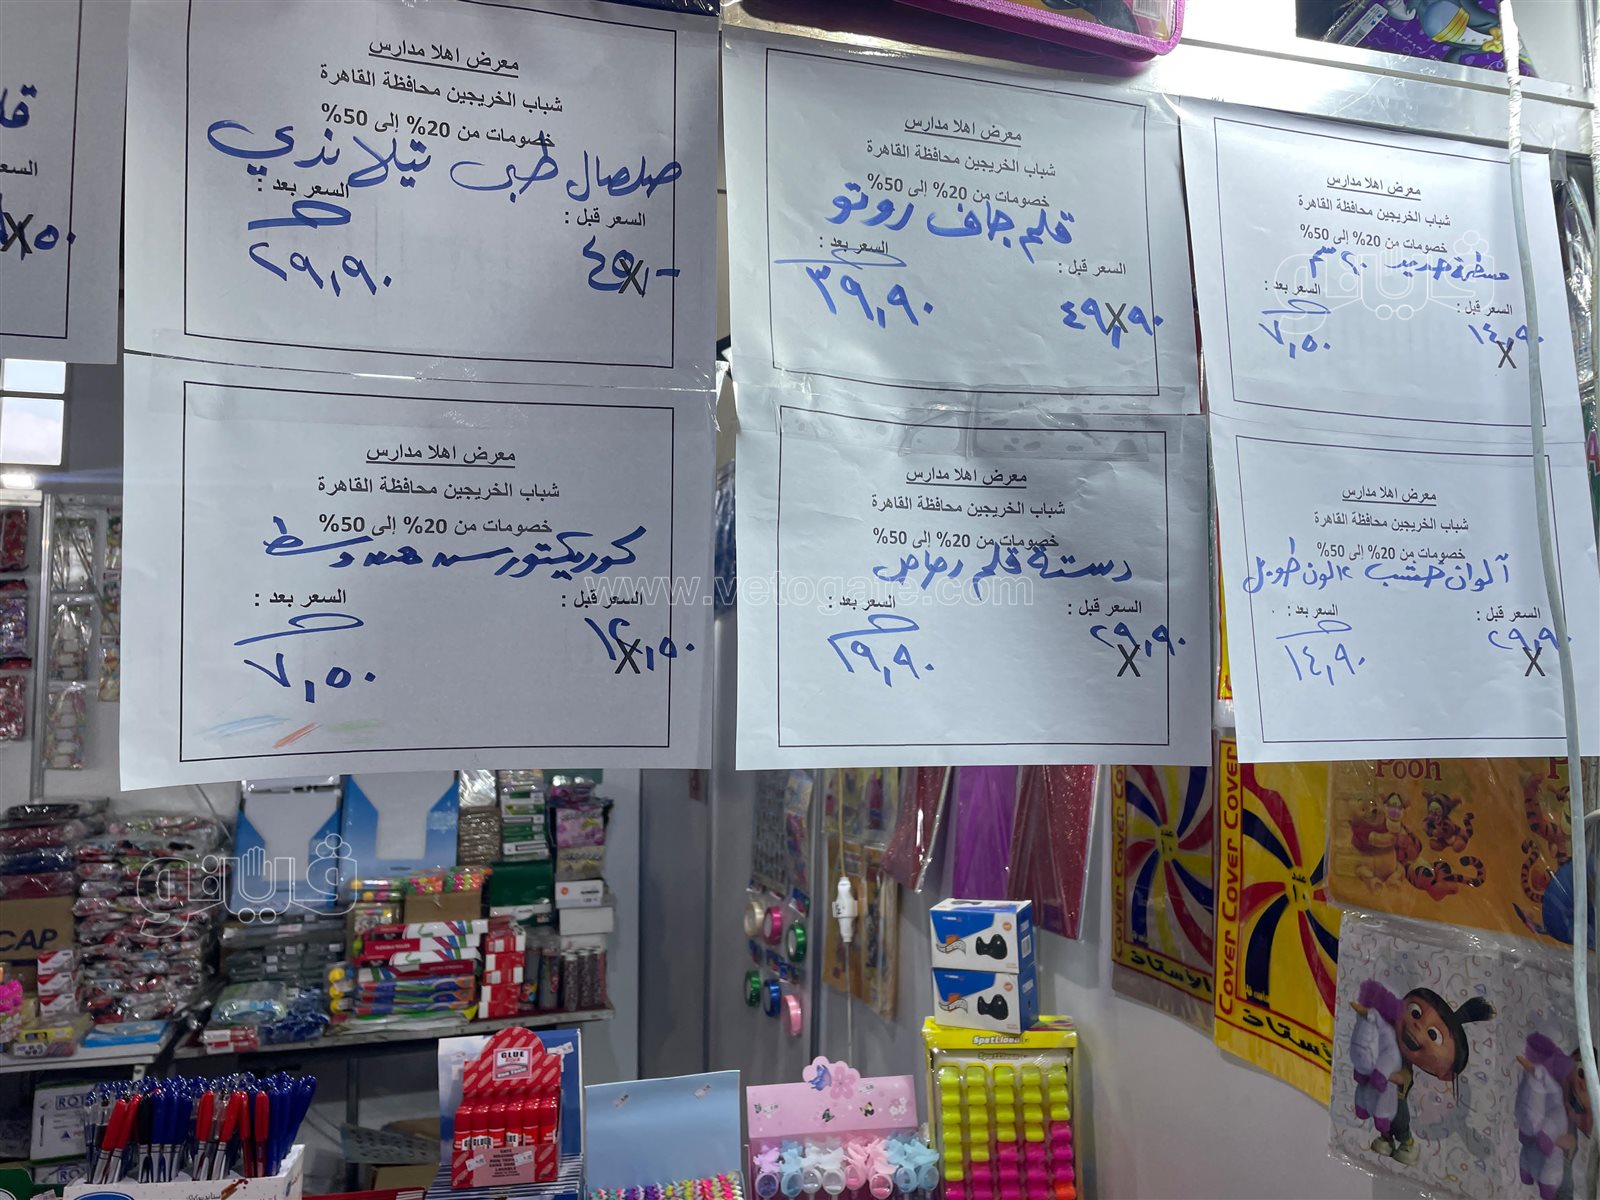 معرض اهلا مدارس
شباب الخريجين محافظة القاهرة
خصومات من 20% إلى 50%
مسطرة حديد ٢٠ سم
السعر قبل :
السعر بعد :
١٤,٩٠
٧,٥٠
معرض اهلا مدارس
شباب الخريجين محافظة القاهرة
خصومات من 20% إلى 50%
قلم جاف روتو
السعر قبل :
السعر بعد :
٤٩,٩٠
٣٩,٩٠
معرض اهلا مدارس
شباب الخريجين محافظة القاهرة
خصومات من 20% إلى 50%
صلصال طبى تيلاندي
السعر قبل :
السعر بعد :
٢٩,٩٠
معرض اهلا مدارس
شباب الخريجين محافظة القاهرة
خصومات من 20% إلى 50%
ألوان خشب ١٢ لون طويل
السعر قبل :
السعر بعد :
٢٩,٩٠
١٤,٩٠
معرض اهلا مدارس
شباب الخريجين محافظة القاهرة
خصومات من 20% إلى 50%
دستة قلم رصاص
السعر قبل :
السعر بعد :
٢٩,٩٠
١٩,٩٠
معرض اهلا مدارس
شباب الخريجين محافظة القاهرة
خصومات من 20% إلى 50%
كوريكتور سن وسط
السعر قبل :
السعر بعد :
١٢,٥٠
٧,٥٠
السعر
www.vetogate.com
فيتو
فيتو
Pooh
Cover Cover Cover
Cover Cover Cover
الأستاذ
الأستاذ
عدد
١٠
CAP
GLUE
SpotLiner